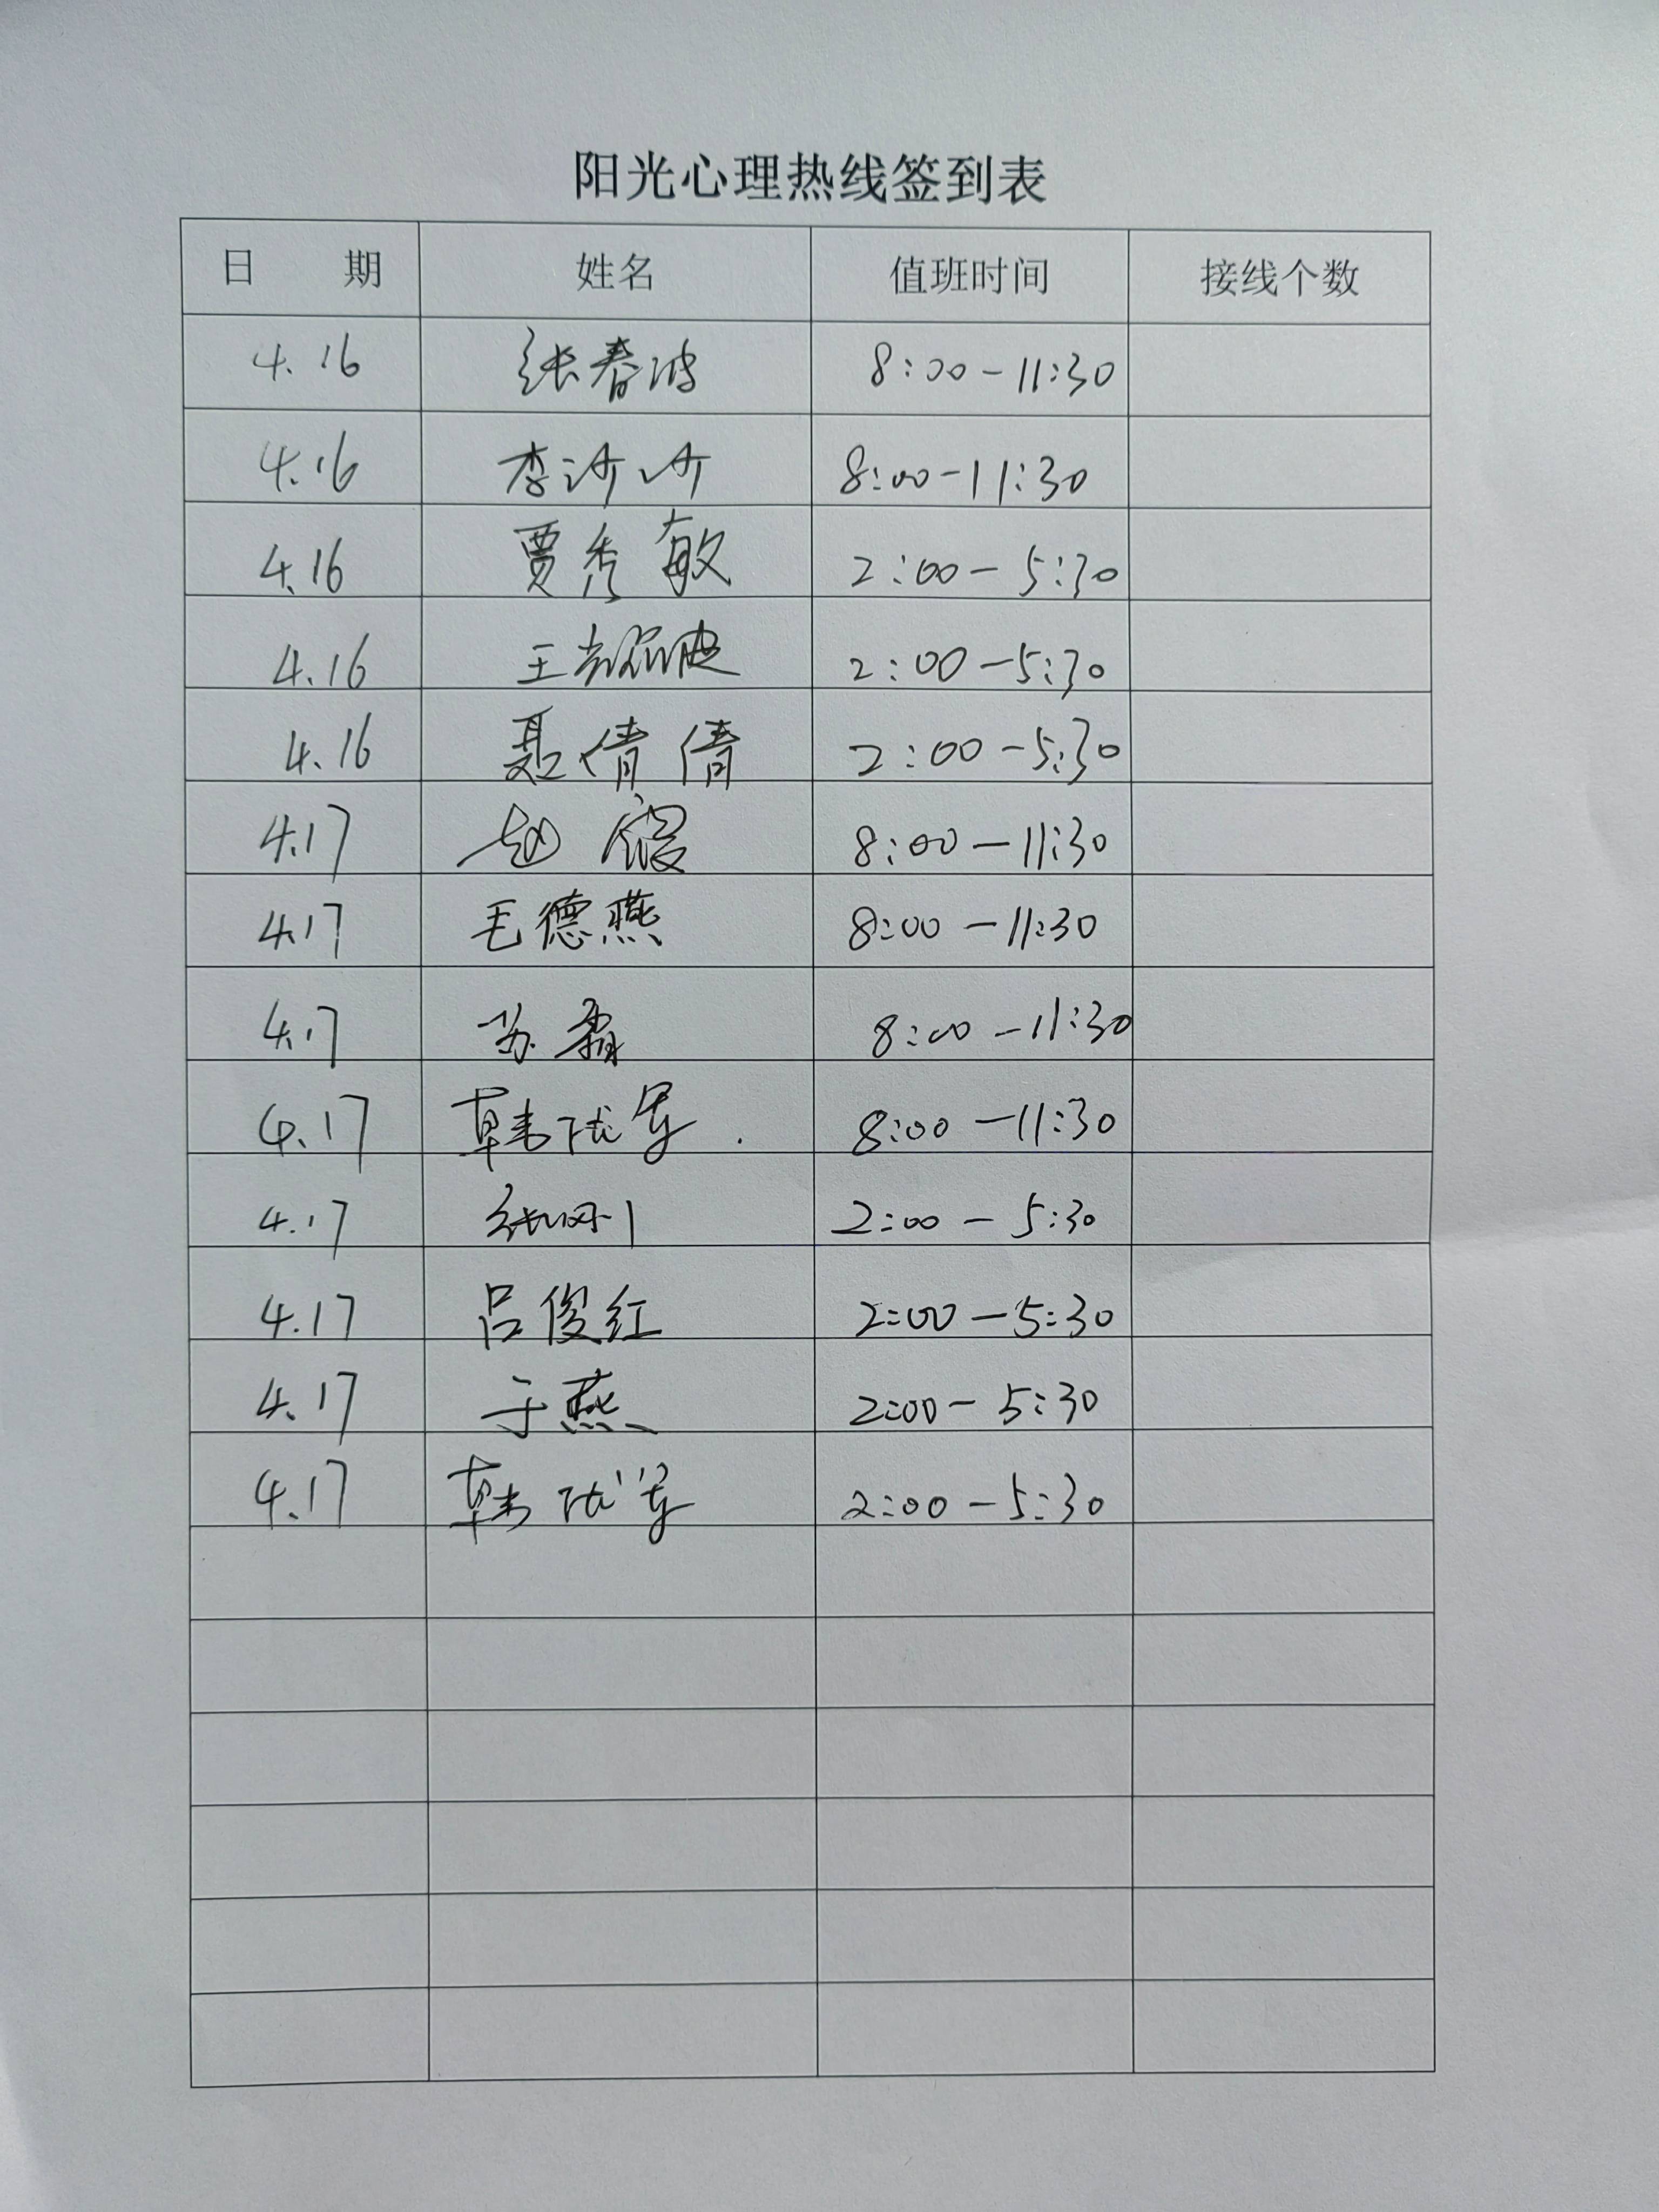 阳光心理热线签到表
日 期 姓名 值班时间 接线个数
4.16 张春波 8:00-11:30
4.16 李沙沙 8:00-11:30
4.16 贾秀敏 2:00-5:30
4.16 王 2:00-5:30
4.16 聂倩倩 2:00-5:30
4.17 赵 8:00-11:30
4.17 毛德燕 8:00-11:30
4.17 苏霜 8:00-11:30
4.17 韩 8:00-11:30
4.17 张 2:00-5:30
4.17 吕俊红 2:00-5:30
4.17 于燕 2:00-5:30
4.17 韩 2:00-5:30